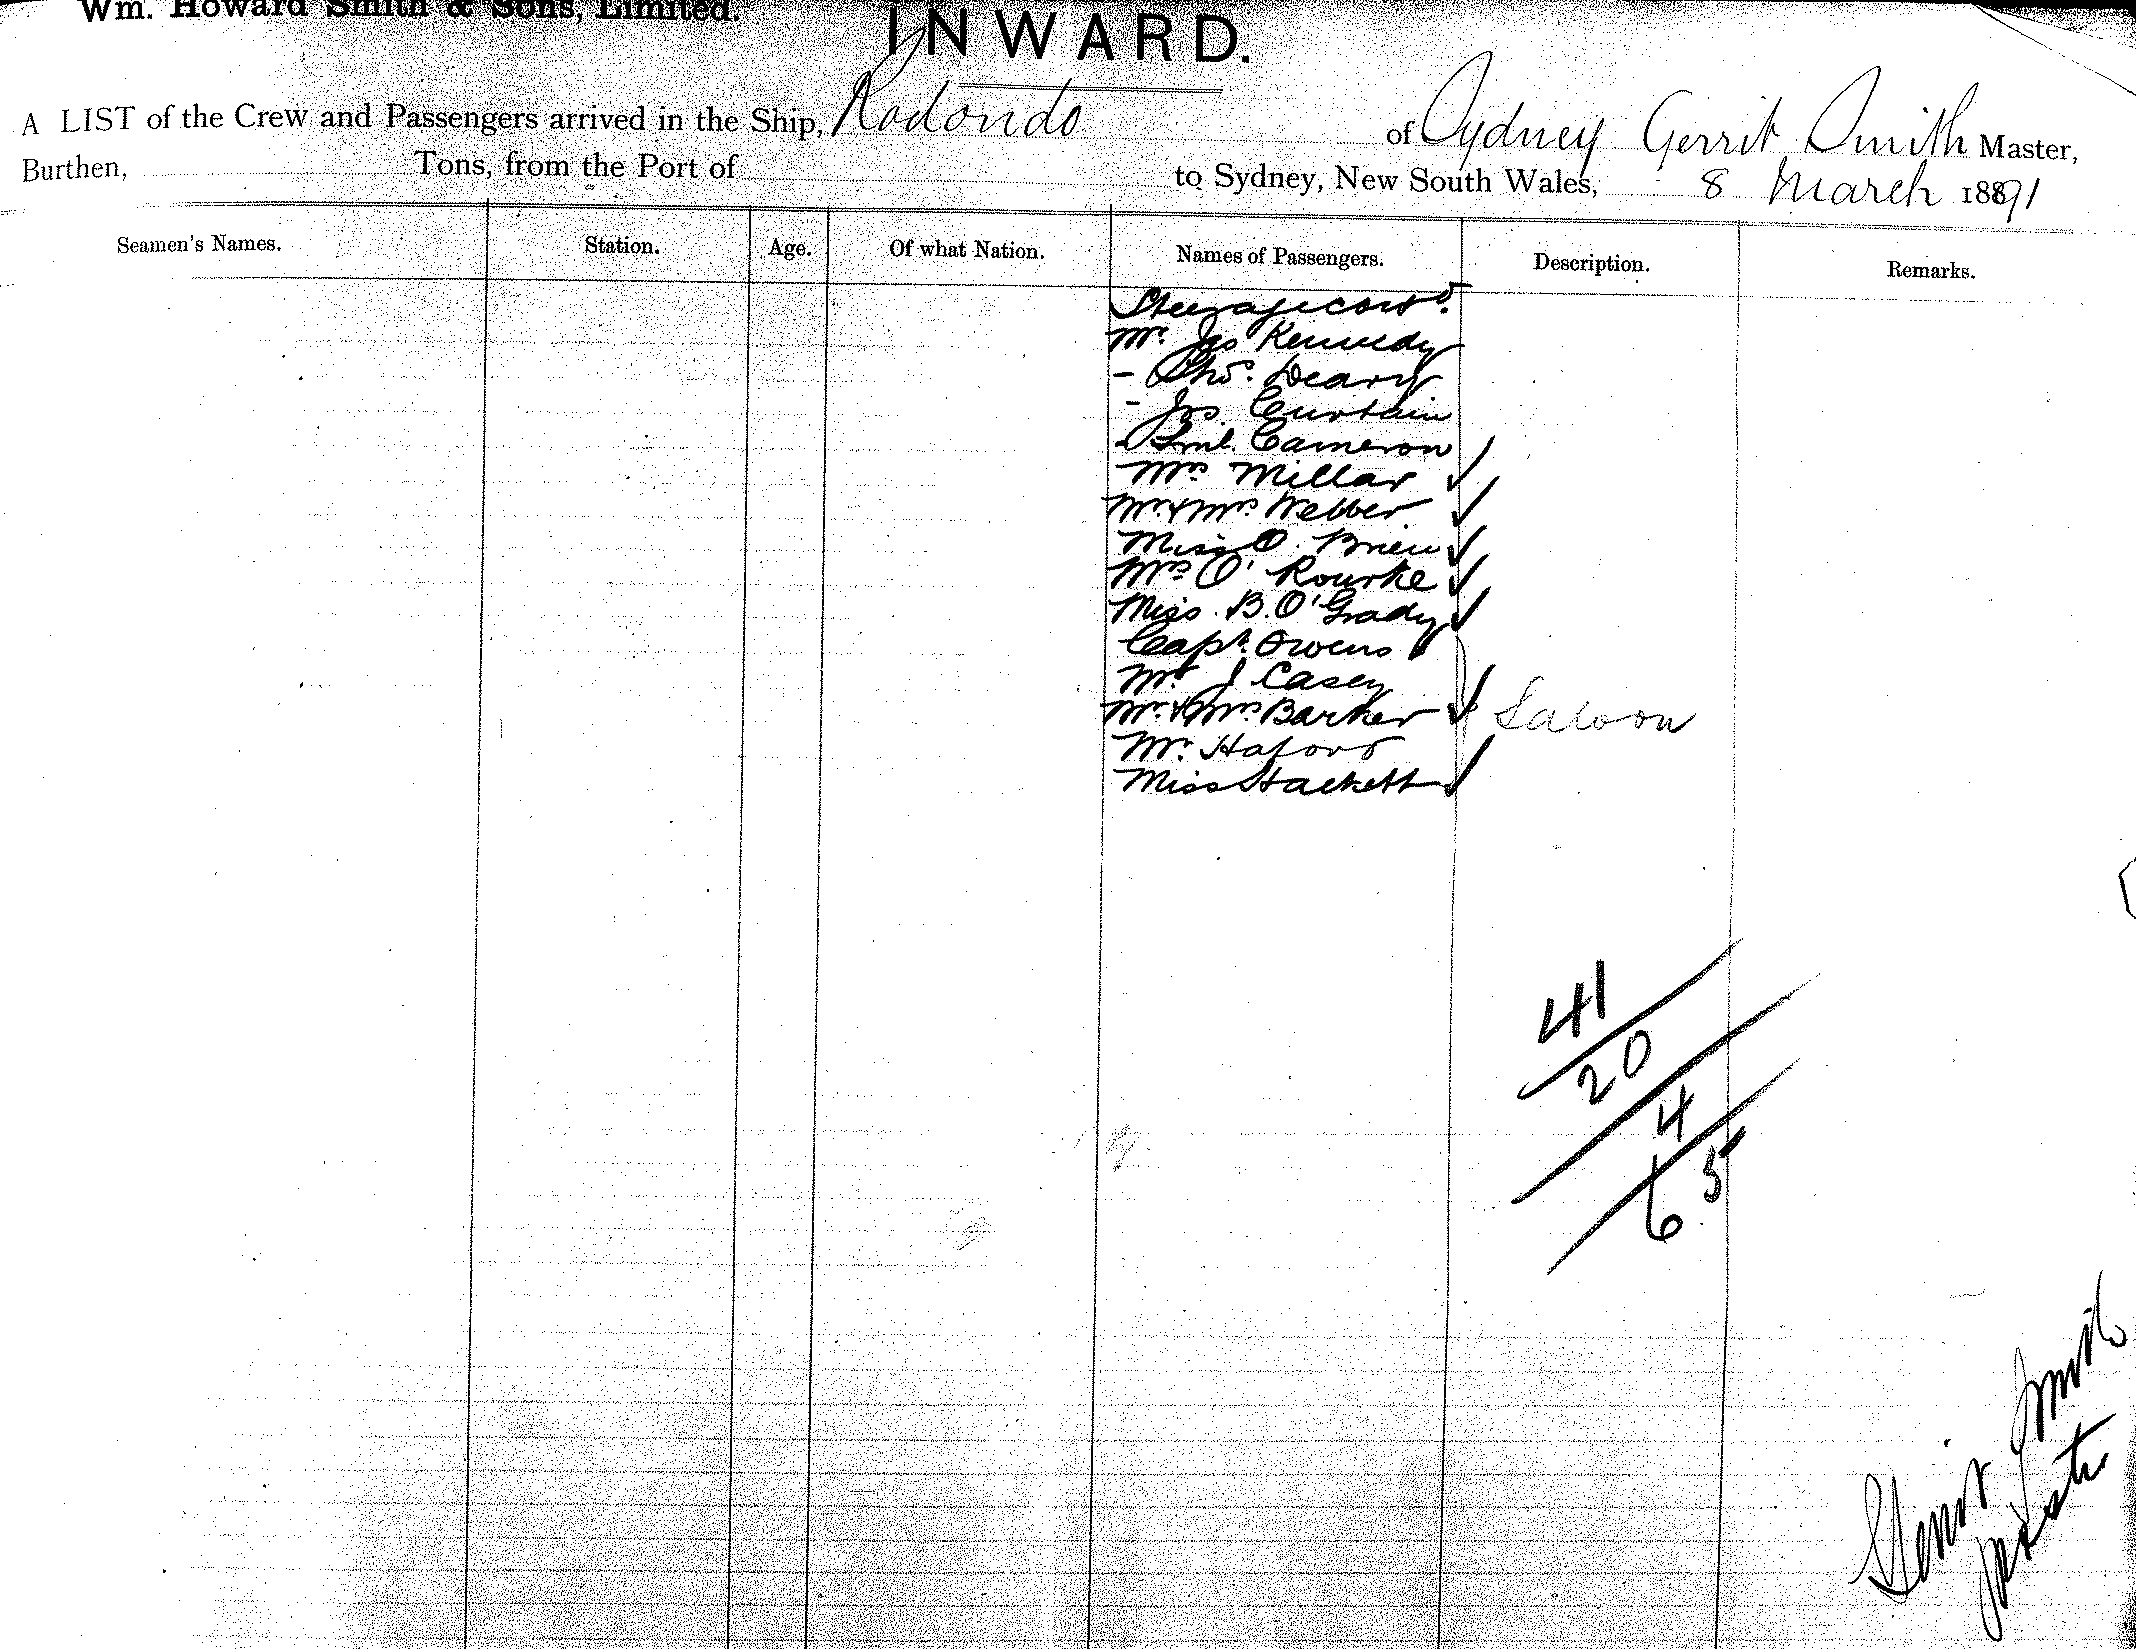 Wm. Howard Smith & Sons, Limited.
INWARD.
A LIST of the Crew and Passengers arrived in the Ship, Rodondo of Sydney Gerrit Smith Master,
Burthen, Tons, from the Port of to Sydney, New South Wales, 8 March 1891
Seamen's Names. Station. Age. Of what Nation. Names of Passengers. Description. Remarks.
Steerage cont.d
Mr. Jas Kennedy
- Thos. Deary
- Jos. Curtain
Cameron
Mrs Millar
Mr. & Mrs. Webber
Miss O. Brien
Mrs O'Rourke
Miss. B. O'Grady
Capt. Owens
Mr. J Casey
Mr. & Mrs Barker Saloon
Mr.
Miss Hackett
41
20
4
65
Gerrit Smith
Master